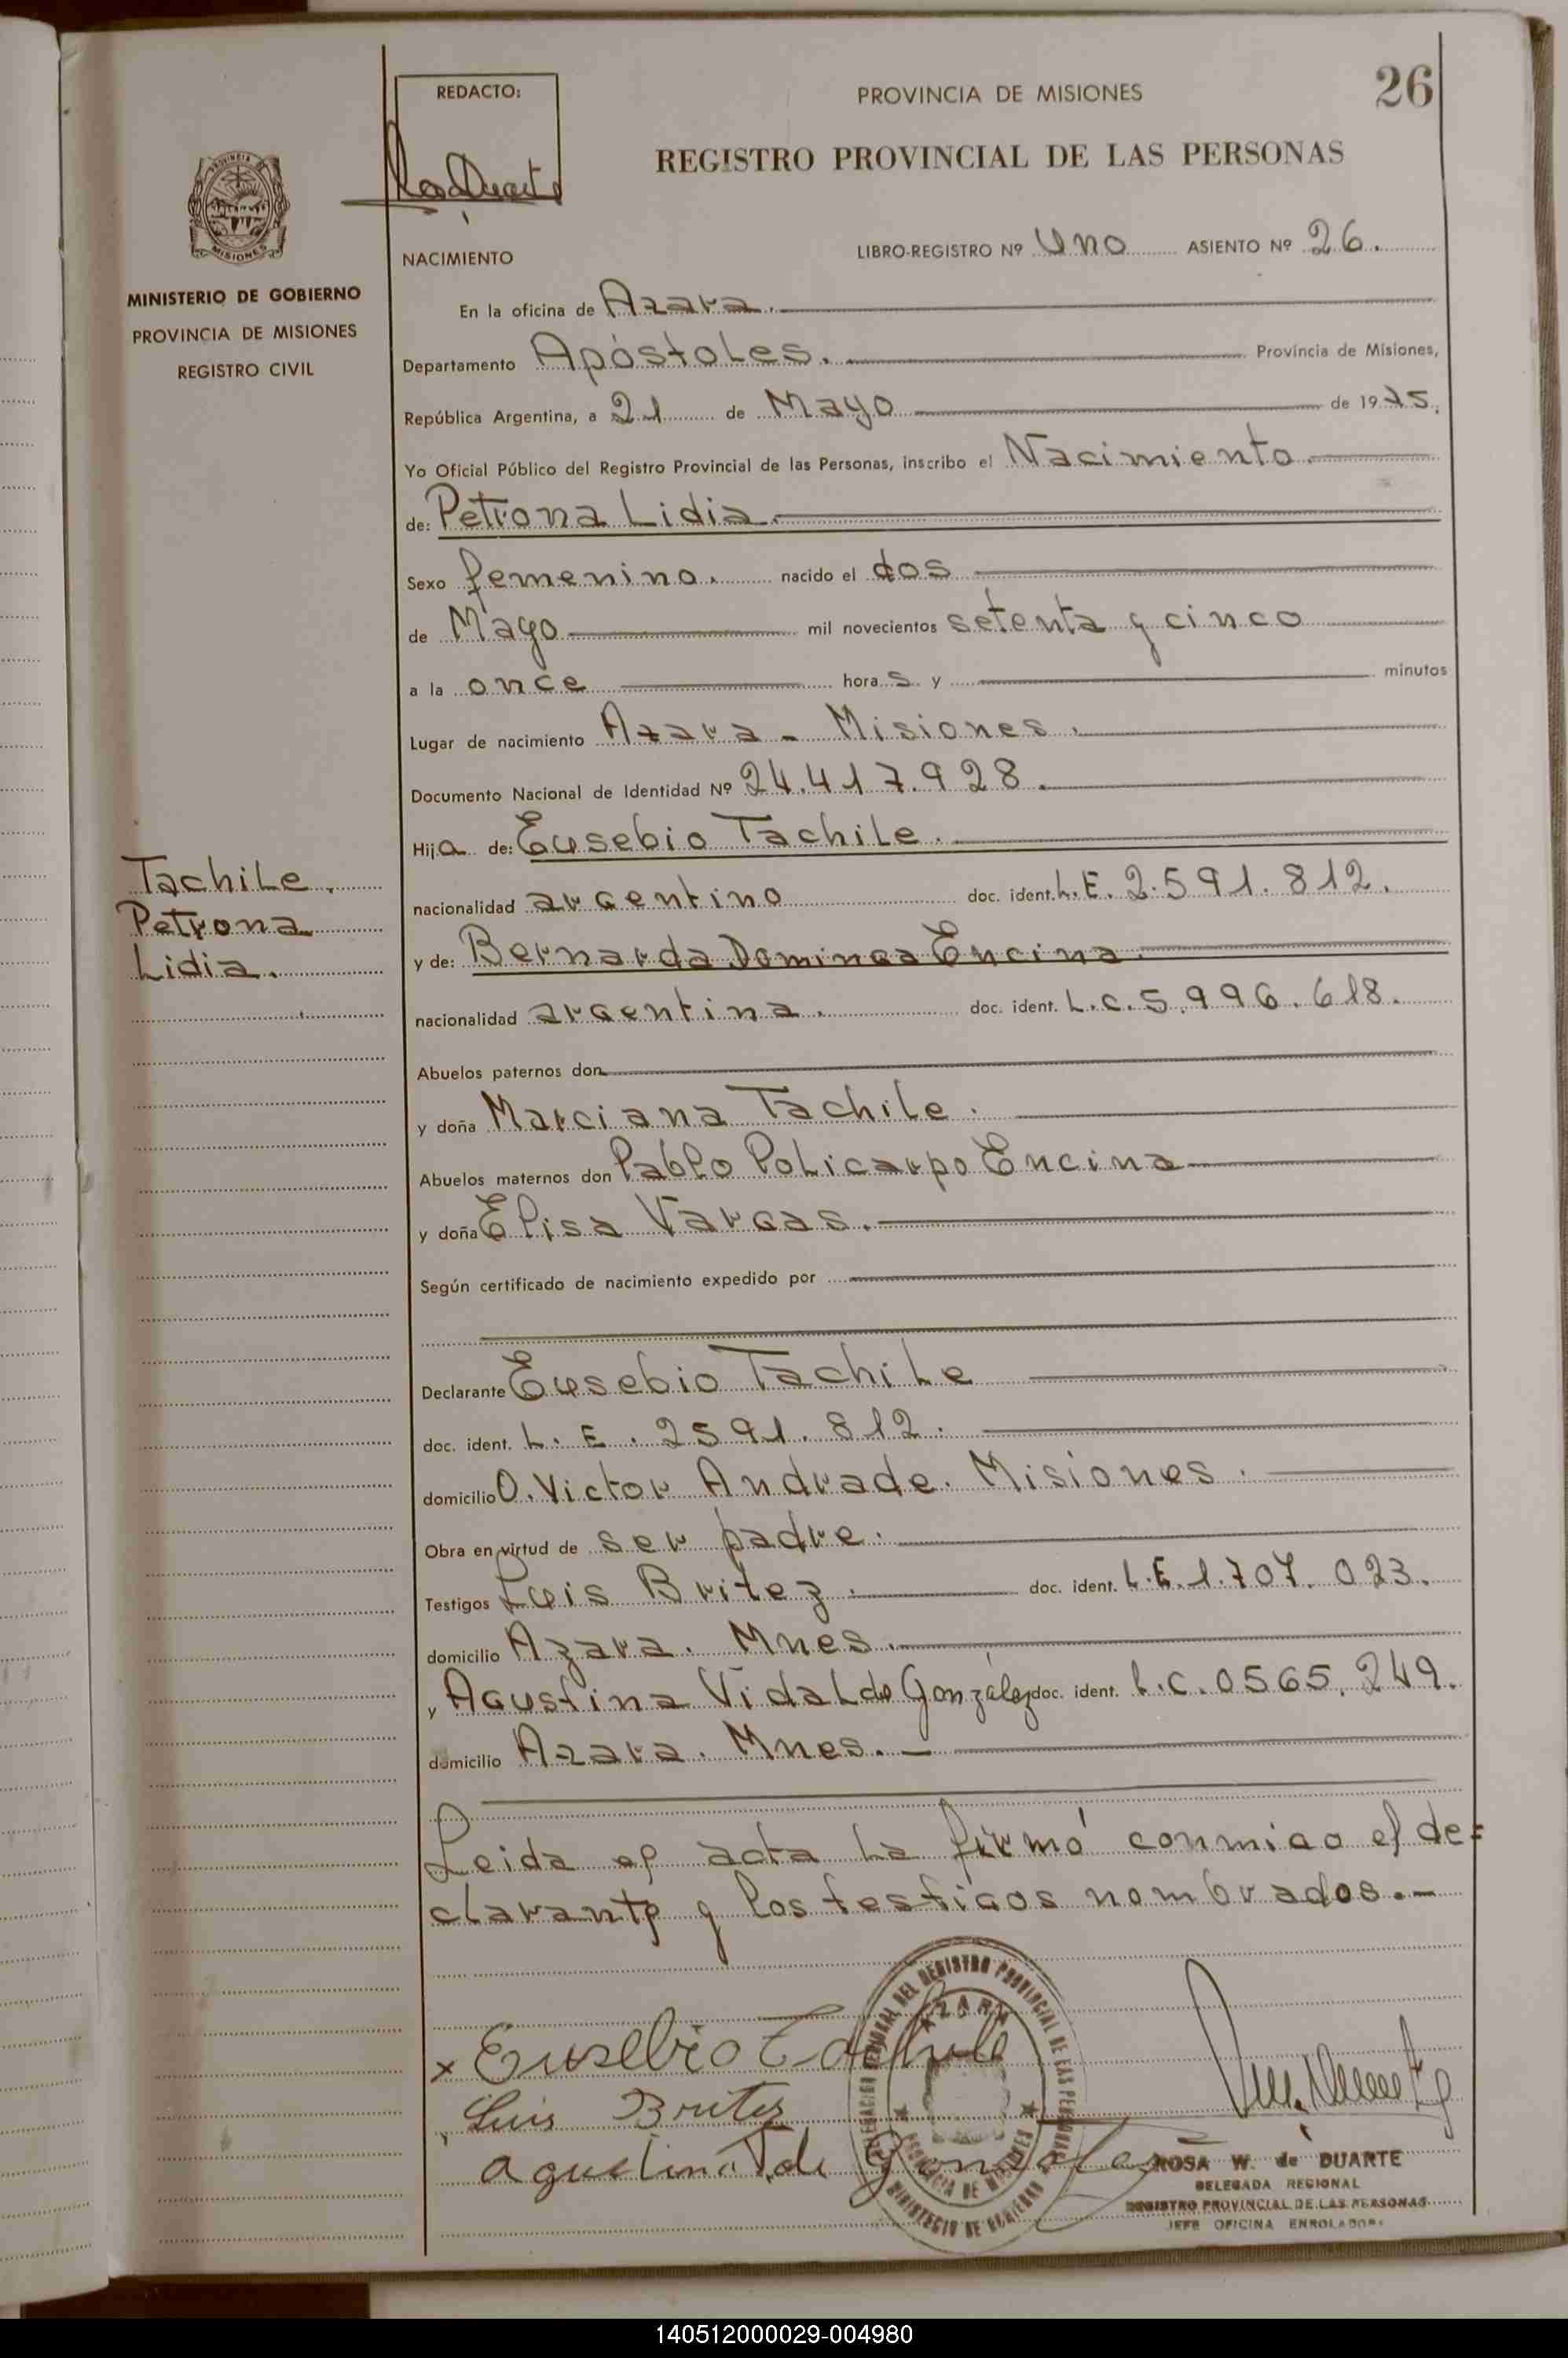 26
REDACTO:
PROVINCIA DE MISIONES
REGISTRO PROVINCIAL DE LAS PERSONAS
MINISTERIO DE GOBIERNO
PROVINCIA DE MISIONES
REGISTRO CIVIL
NACIMIENTO
LIBRO-REGISTRO Nº Uno ASIENTO Nº 26.
En la oficina de Azara.
Departamento Apóstoles. Provincia de Misiones,
República Argentina, a 21 de Mayo de 1975.
Yo Oficial Público del Registro Provincial de las Personas, inscribo el Nacimiento.
de: Petrona Lidia.
Sexo femenino. nacido el dos
de Mayo mil novecientos setenta y cinco
a la once hora s y minutos
Lugar de nacimiento Azara - Misiones.
Documento Nacional de Identidad Nº 24.417.928.
Hija de: Eusebio Tachile.
Tachile.
Petrona
Lidia.
nacionalidad argentino doc. ident. L.E. 2.591.812.
y de: Bernarda Dominga Encina.
nacionalidad argentina. doc. ident. L.C. 5.996.618.
Abuelos paternos don
y doña Marciana Tachile.
Abuelos maternos don Pablo Policarpo Encina
y doña Elisa Vargas.
Según certificado de nacimiento expedido por
Declarante Eusebio Tachile
doc. ident. L. E. 2591.812.
domicilio O. Victor Andrade. Misiones.
Obra en virtud de ser padre.
Testigos Luis Britez. doc. ident. L.E. 1.707.023.
domicilio Azara. Mnes.
y Agustina Vidal de González doc. ident. L.C. 0565.249.
domicilio Azara. Mnes. -
Leida el acta la firmó conmigo el de=
clarante y los testigos nombrados.-
x Eusebio Tachile
Luis Britez
Agustina V. de Gonzalez
AZARA
PROVINCIA DE MISIONES
MINISTERIO DE GOBIERNO
ROSA W. de DUARTE
DELEGADA REGIONAL
REGISTRO PROVINCIAL DE LAS PERSONAS
JEFE OFICINA ENROLADORA
140512000029-004980